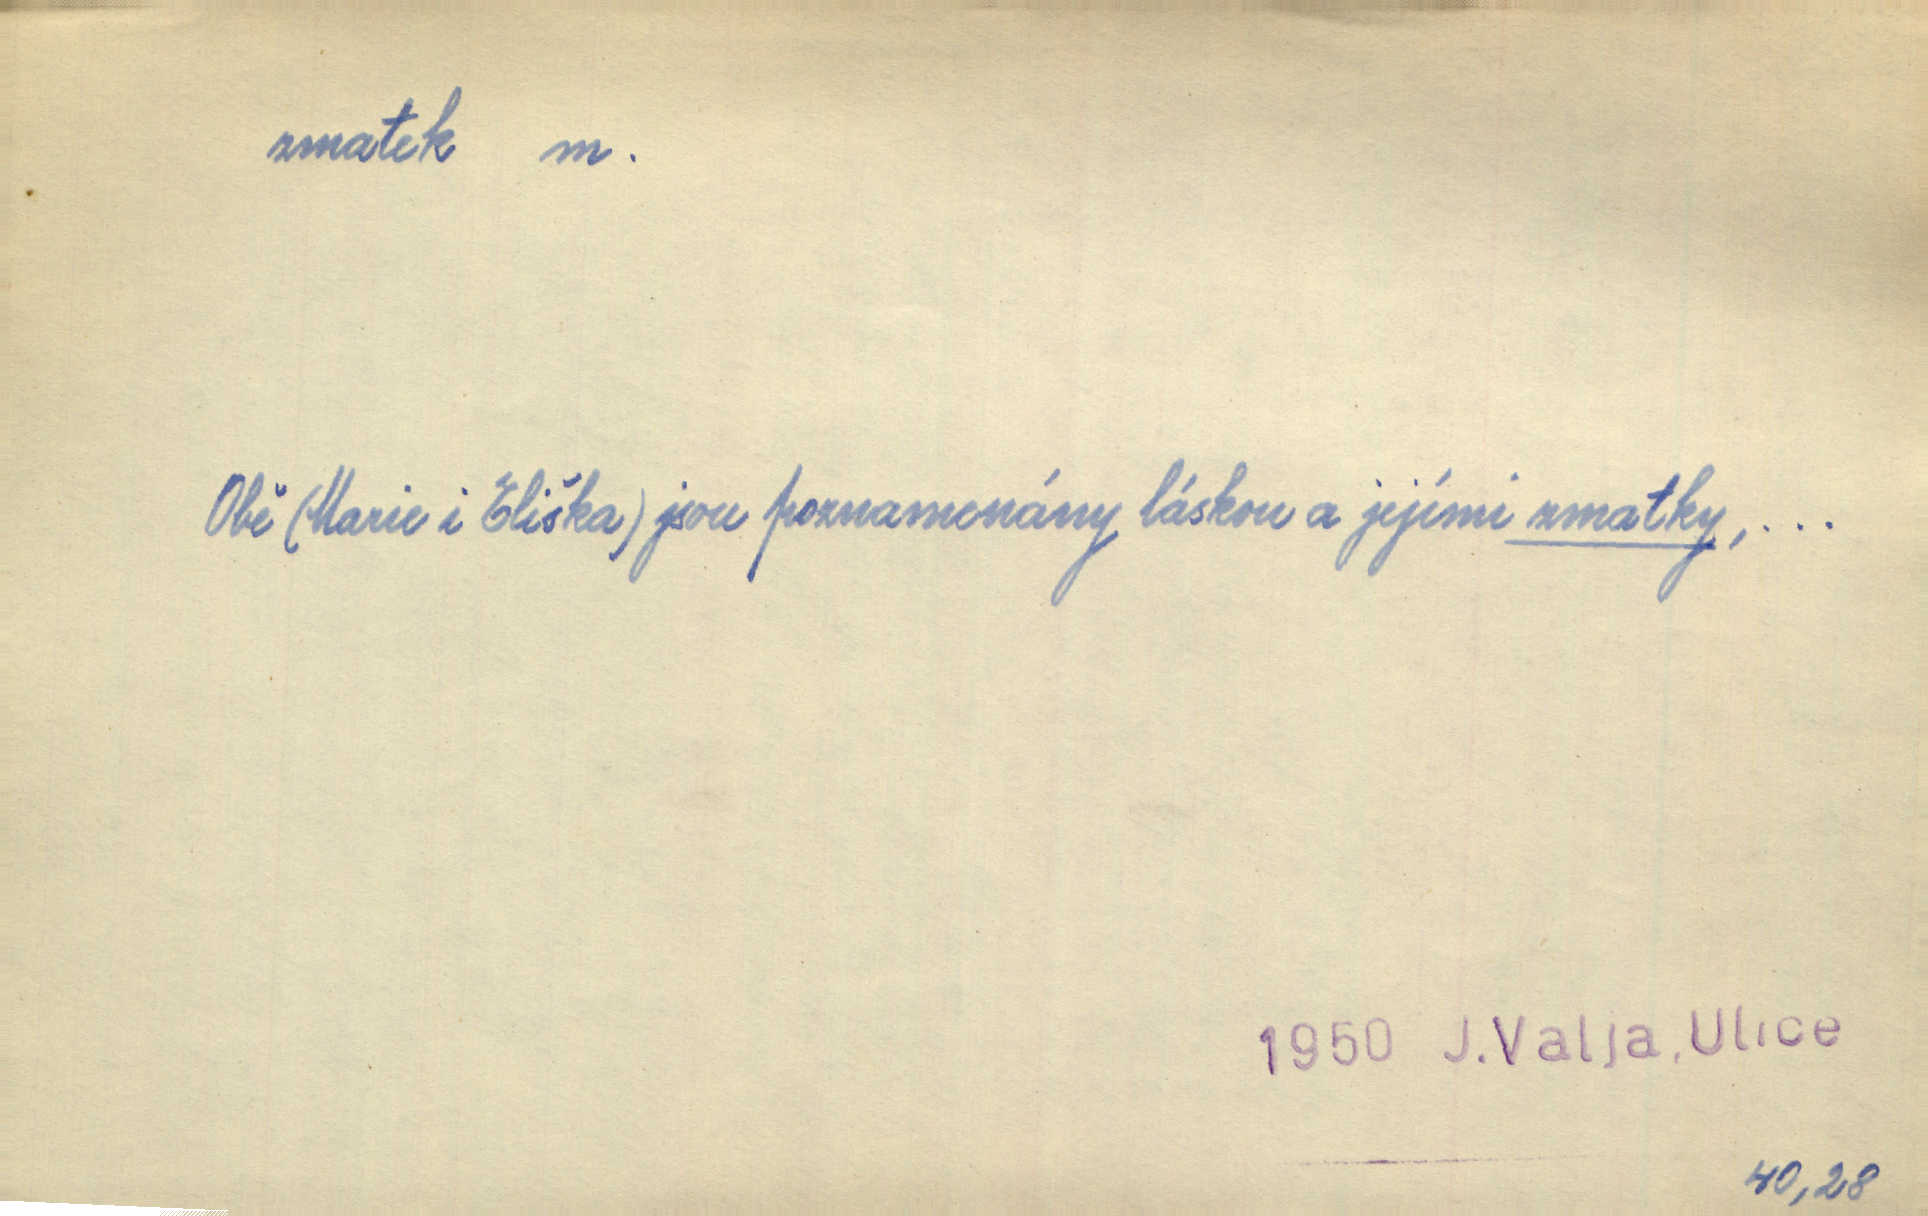 zmatek m.
Obě (Marie i Eliška) jsou poznamenány láskou a jejími zmatky, ...
1950 J.Valja, Ulice
40,28